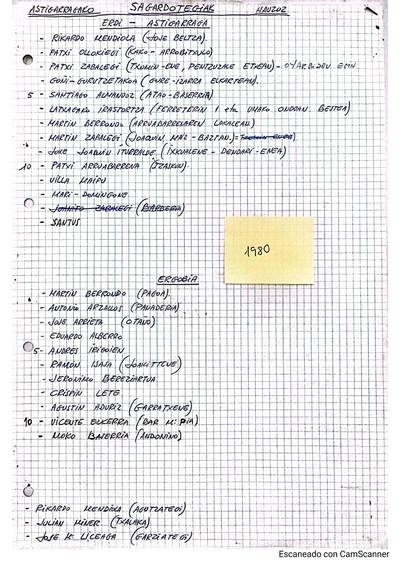 ASTIGARRAGAKO SAGARDOTEGIAK
ERDI - ASTIGARRAGA
- RIKARDO MENDIOLA (JOSE BELTZA).
- PATXI OLLOKIEGI (KAKO-ARROBITXULO)
- PATXI ZABALEGI (TXOMIN-ENE, PENTZUZKE ETXEAN)
- GOÑI-GURUTZETAKOA (GURE-IZARRA ELKARTEAN).
5 - SANTIAGO ALMANDOZ (ATAO-BASERRIA)
- LATXAGAKO IRASTORTZA (FERRETERIN
- MARTIN BERRONDO (ARRUABARRENAREN LOKALEAN)
- MARTIN ZABALEGI (JOAQUIN
- JOSE JOAQUIN ITURRALDE
10 - PATXI ARRUABARRENA (ITZASKUN).
- VILLA MAIPU
- MARI-DOMINGONE
- JOANITO ZABALEGI
- SANTUS
1980
ERGOBIA
- MARTIN BERRONDO (PAGOA).
- ANTONIO ARZALLUS (PANADERIA)
- JOSE ARRIETA (OTAÑO)
- EDUARDO ALBERDO
5 - ANDRES IRIGOIEN
- RAMÓN ISASA
- JERONIMO BEREZIARTUA
- CRISPIN LETE
- AGUSTIN ADURIZ (GARRATXENE)
10 - VICENTE EIZKERRA (BAR Mª PIA)
- MOKO BASERRIA (ANDONINO)
- RIKARDO MENDIOLA (AGOTZATEGI)
- JULIAN MINER (TXALAKA)
- JOSE M. LICEAGA (GARZIATEGI)
Escaneado con CamScanner